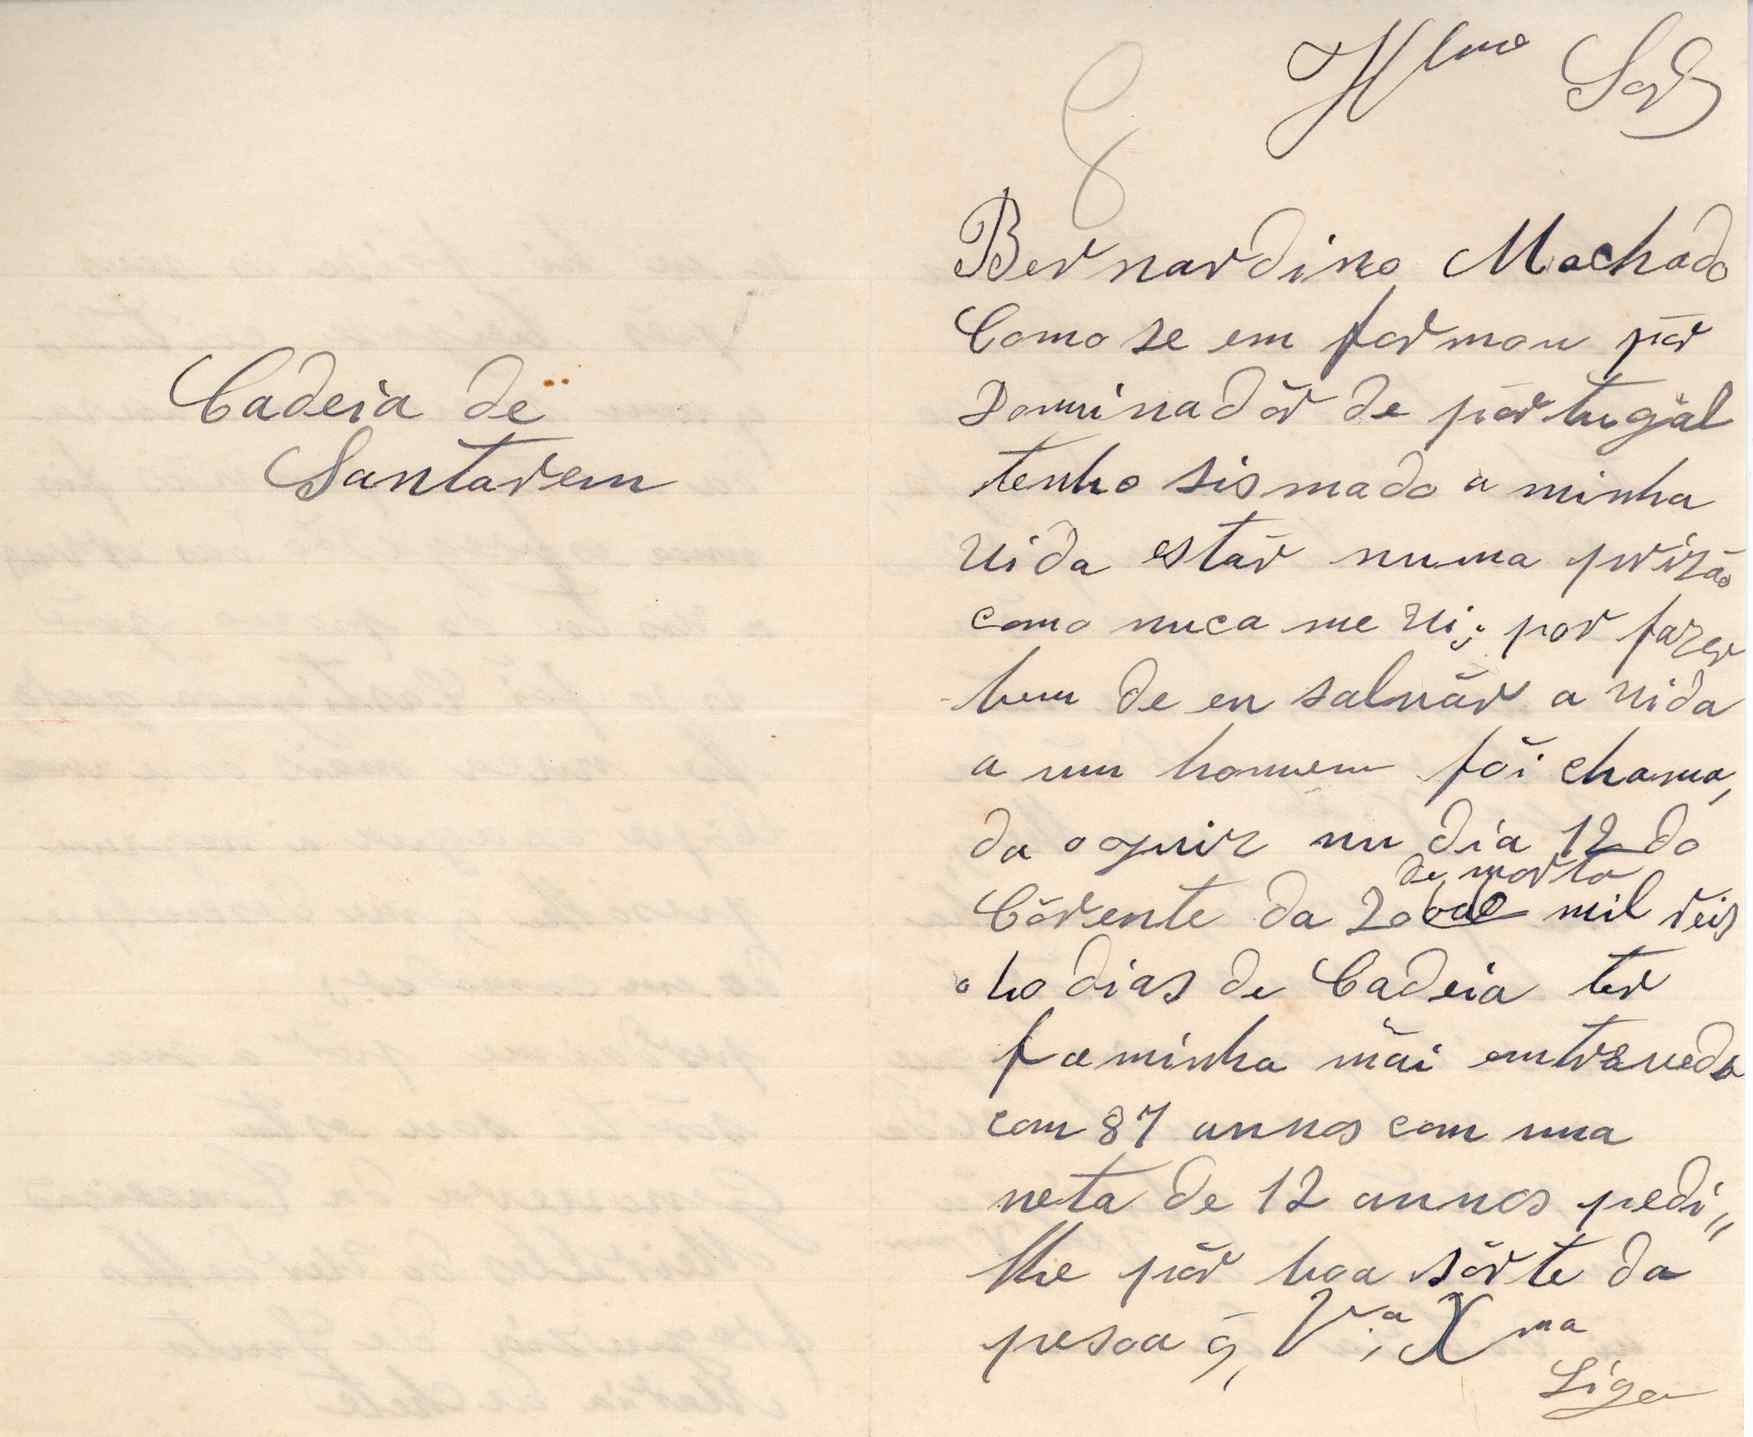 Cadeia de
Santarem
Illmo Snr
Bernardino Machado
Como se em formou pór
Dominadôr de pórtugal
tenho sismado a minha
vida estár numa prizão
como nuca me vi; por fazer
bem de en salvár a vida
a um homem fõi chama,
da o guiz nu dia 12 do
Córente da 20 mil reis
de morta
ho dias de Cadeia ter
minha mãi emtravada
com 87 annos com uma
neta de 12 annos pedi"
lhe pôr boa sôrte da
pesoa q, V.a Xma
Liga